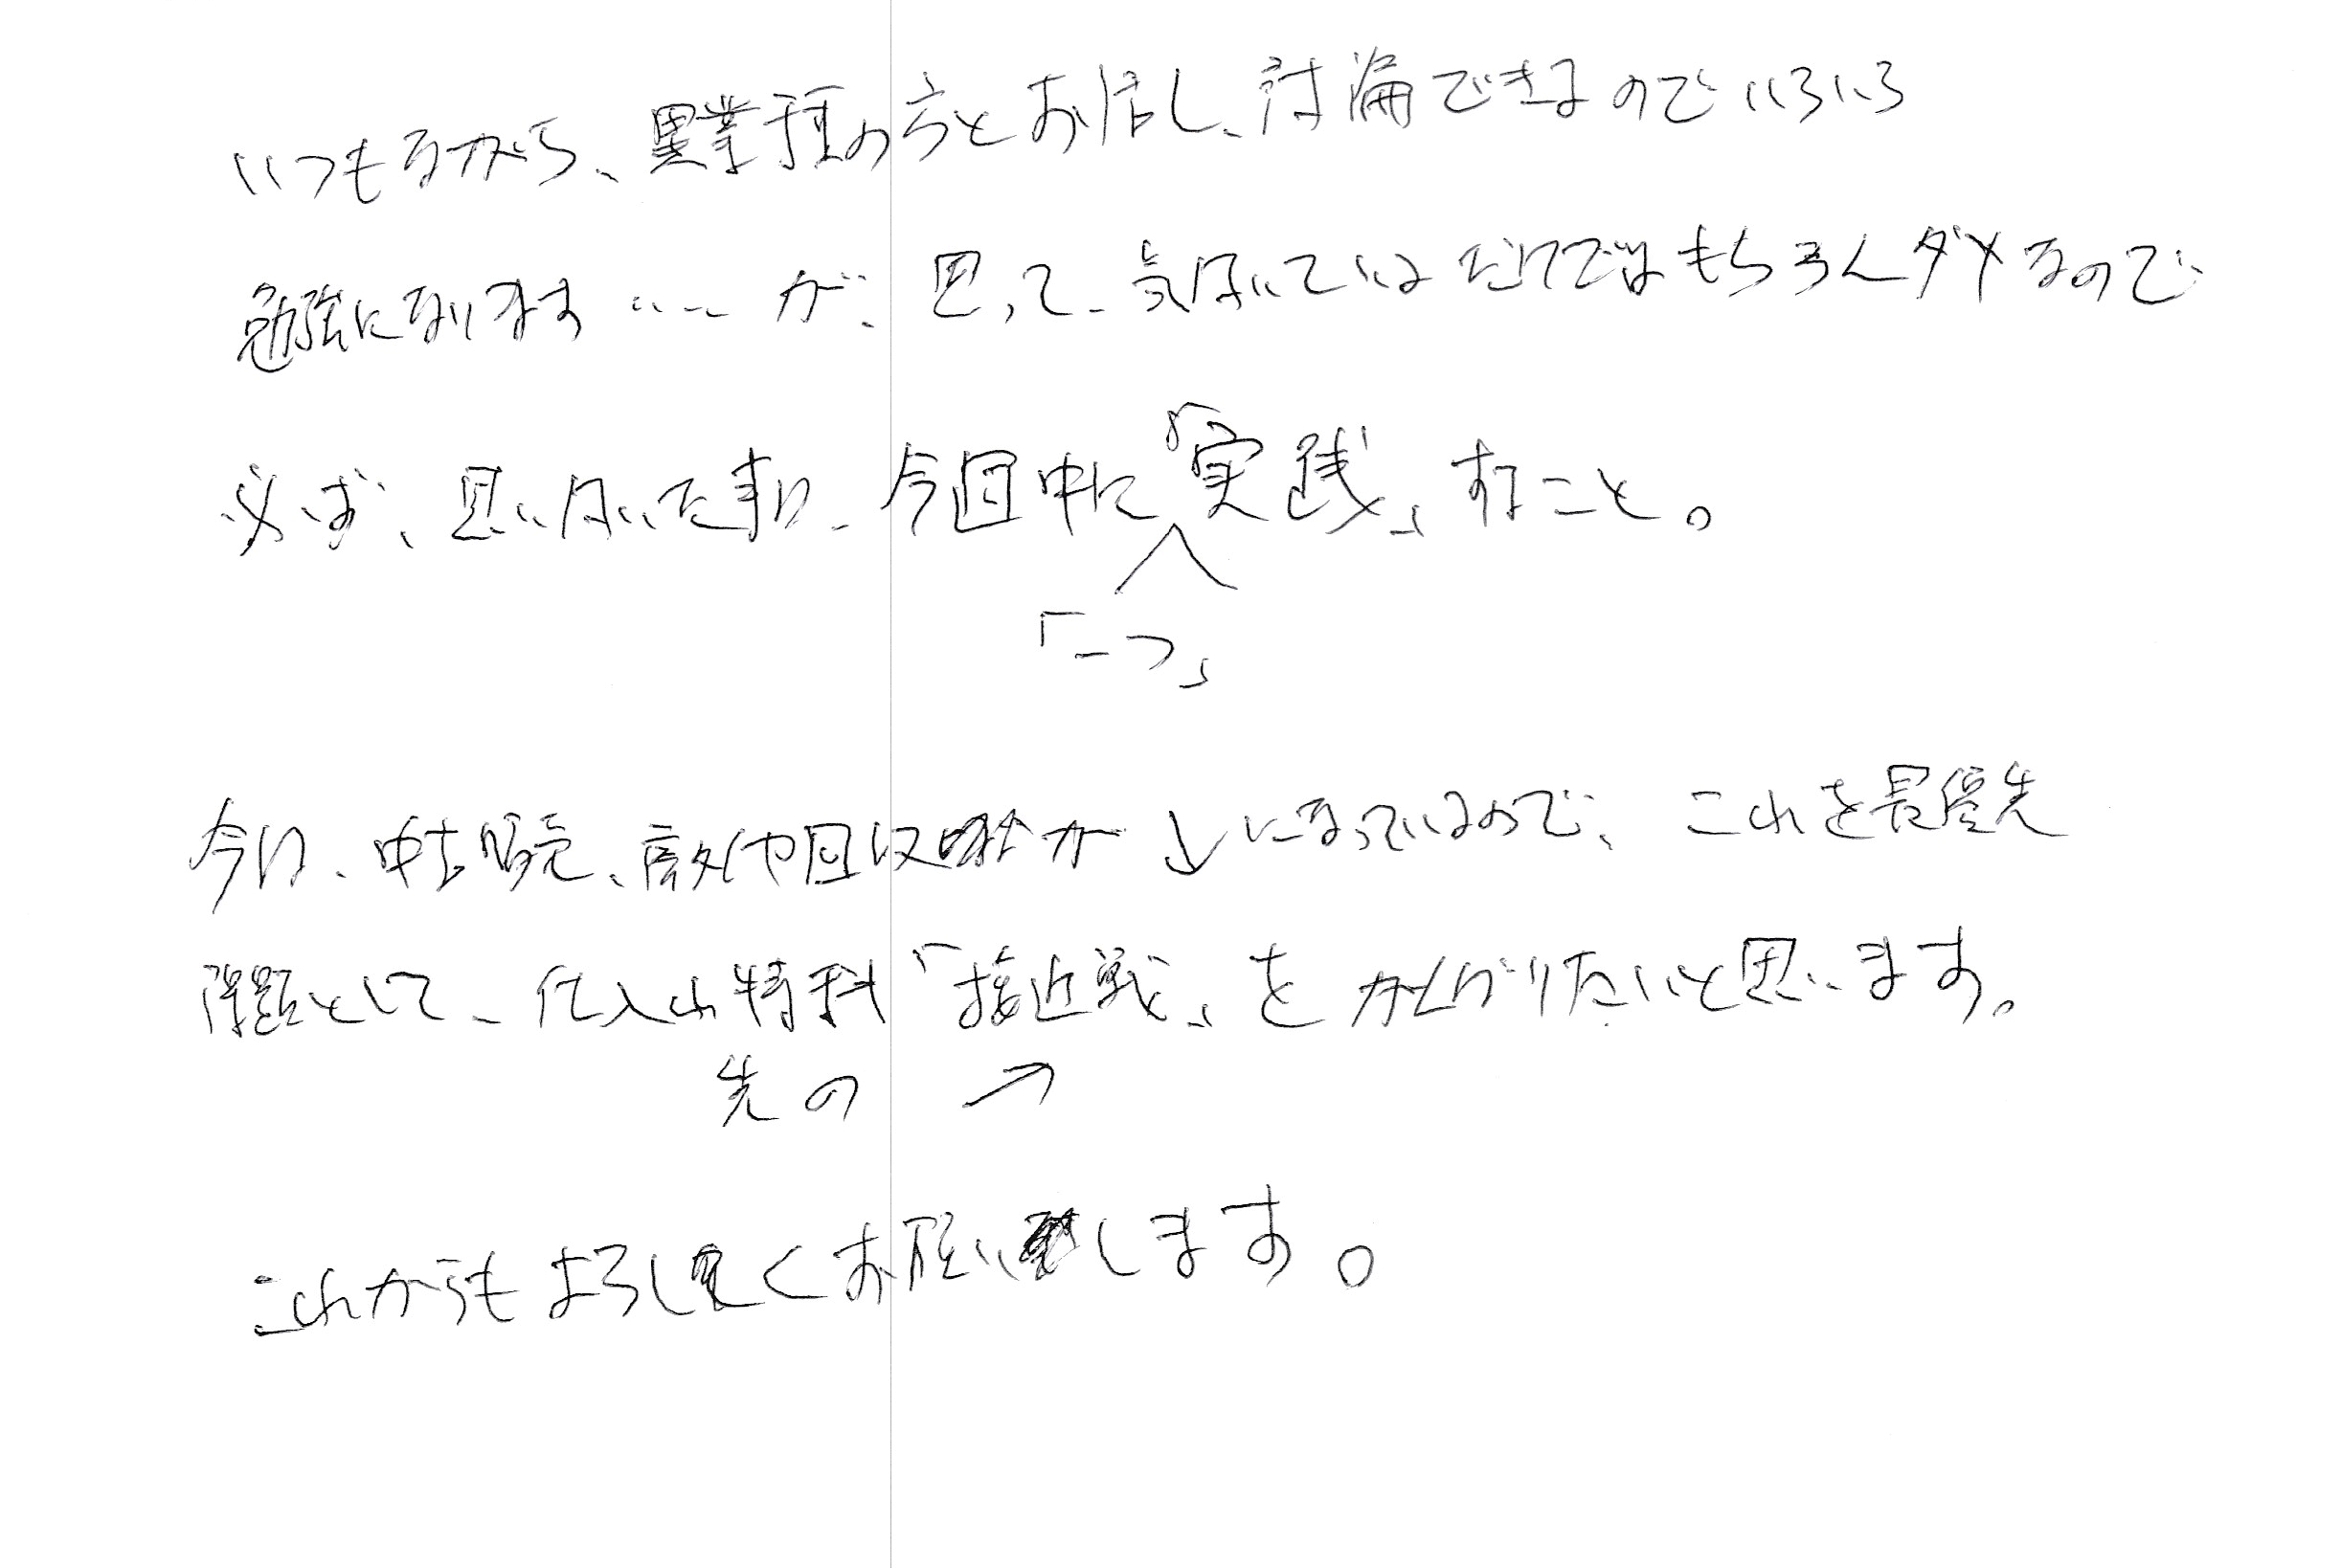 いつもながら、異業種の方とお話し、討論できるのでいろいろ
勉強になります……が、思って、気付いているだけではもちろんダメなので
必ず、思い付いた事は、今週中に「実践」すること。
「一つ」
今は、中古販売、や回収が↓になっているので、これを最優先
課題として、仕入れ特料「接近戦」をがんばりたいと思います。
先の →
これからもよろしくお願いします。